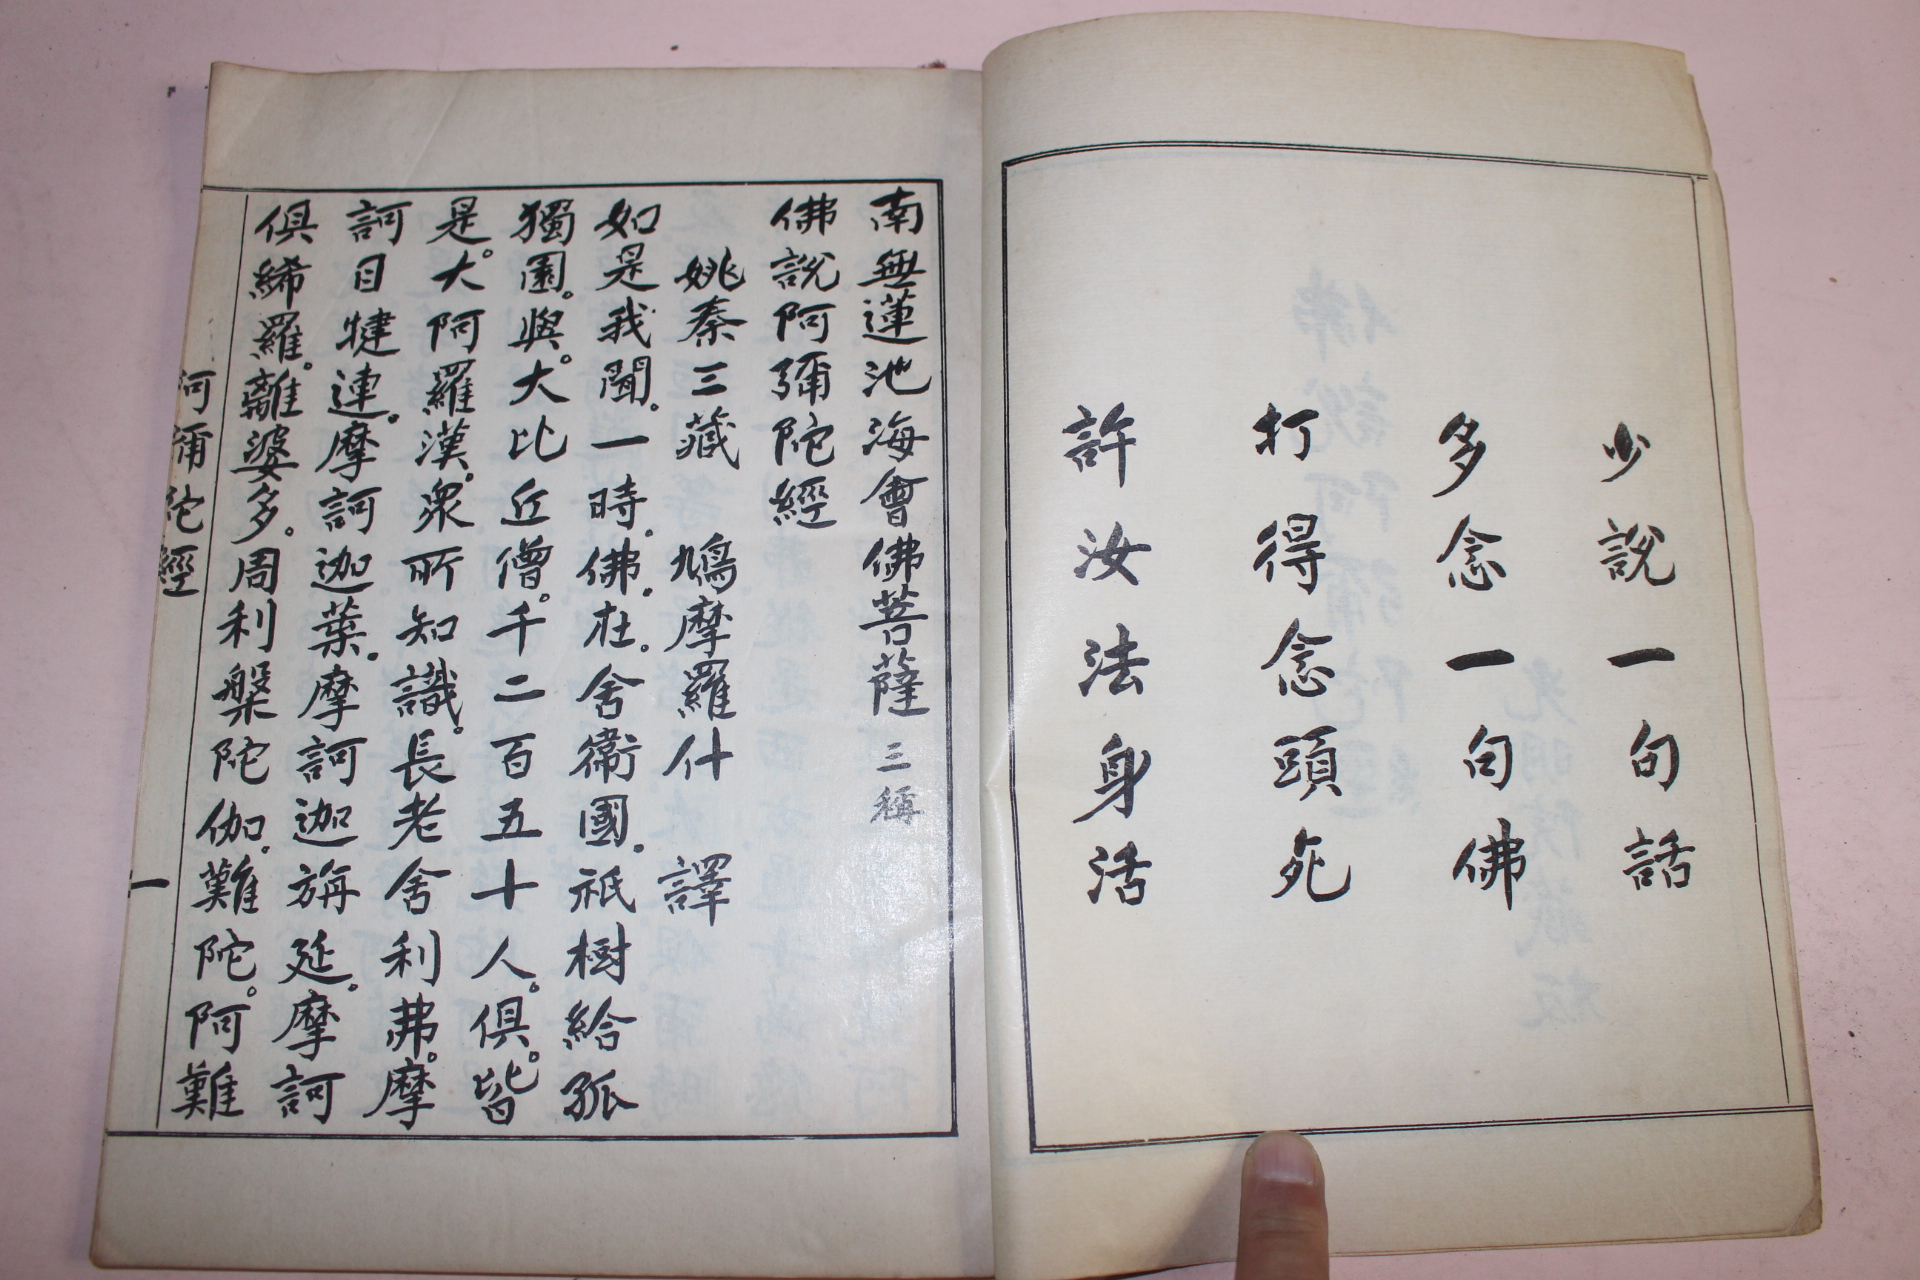 少說一句話
多念一句佛
打得念頭死
許汝法身活
南無蓮池海會佛菩薩 三稱
佛說阿彌陀經
姚秦三藏 鳩摩羅什 譯
如是我聞。一時。佛。在。舍衛國。祇樹給孤
獨園。與。大比丘僧。千二百五十人。俱。皆
是。大阿羅漢。眾所知識。長老舍利弗。摩
訶目犍連。摩訶迦葉。摩訶迦旃延。摩訶
俱絺羅。離婆多。周利槃陀伽。難陀。阿難
阿彌陀經
一